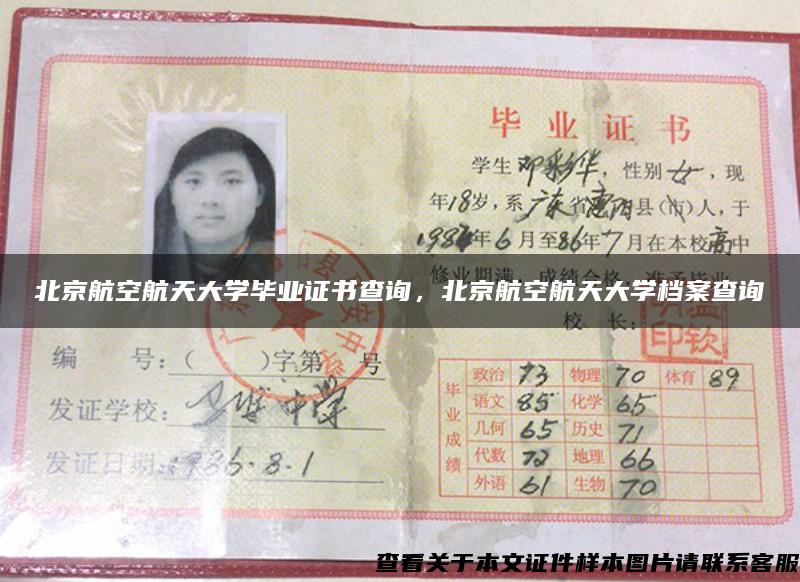 毕业证书
学生邓彩华，性别女，现
年18岁，系广东省惠阳县（市）人，于
198 年6月至86年7月在本校高中
修业期满，成绩合格，准予毕业
北京航空航天大学毕业证书查询，北京航空航天大学档案查询
校 长：
编 号：（ ）字第 号
发证学校： 中学
发证日期：1986.8.1
毕业成绩
政治 73 物理 70 体育 89
语文 85 化学 65
几何 65 历史 71
代数 72 地理 66
外语 61 生物 70
查看关于本文证件样本图片请联系客服